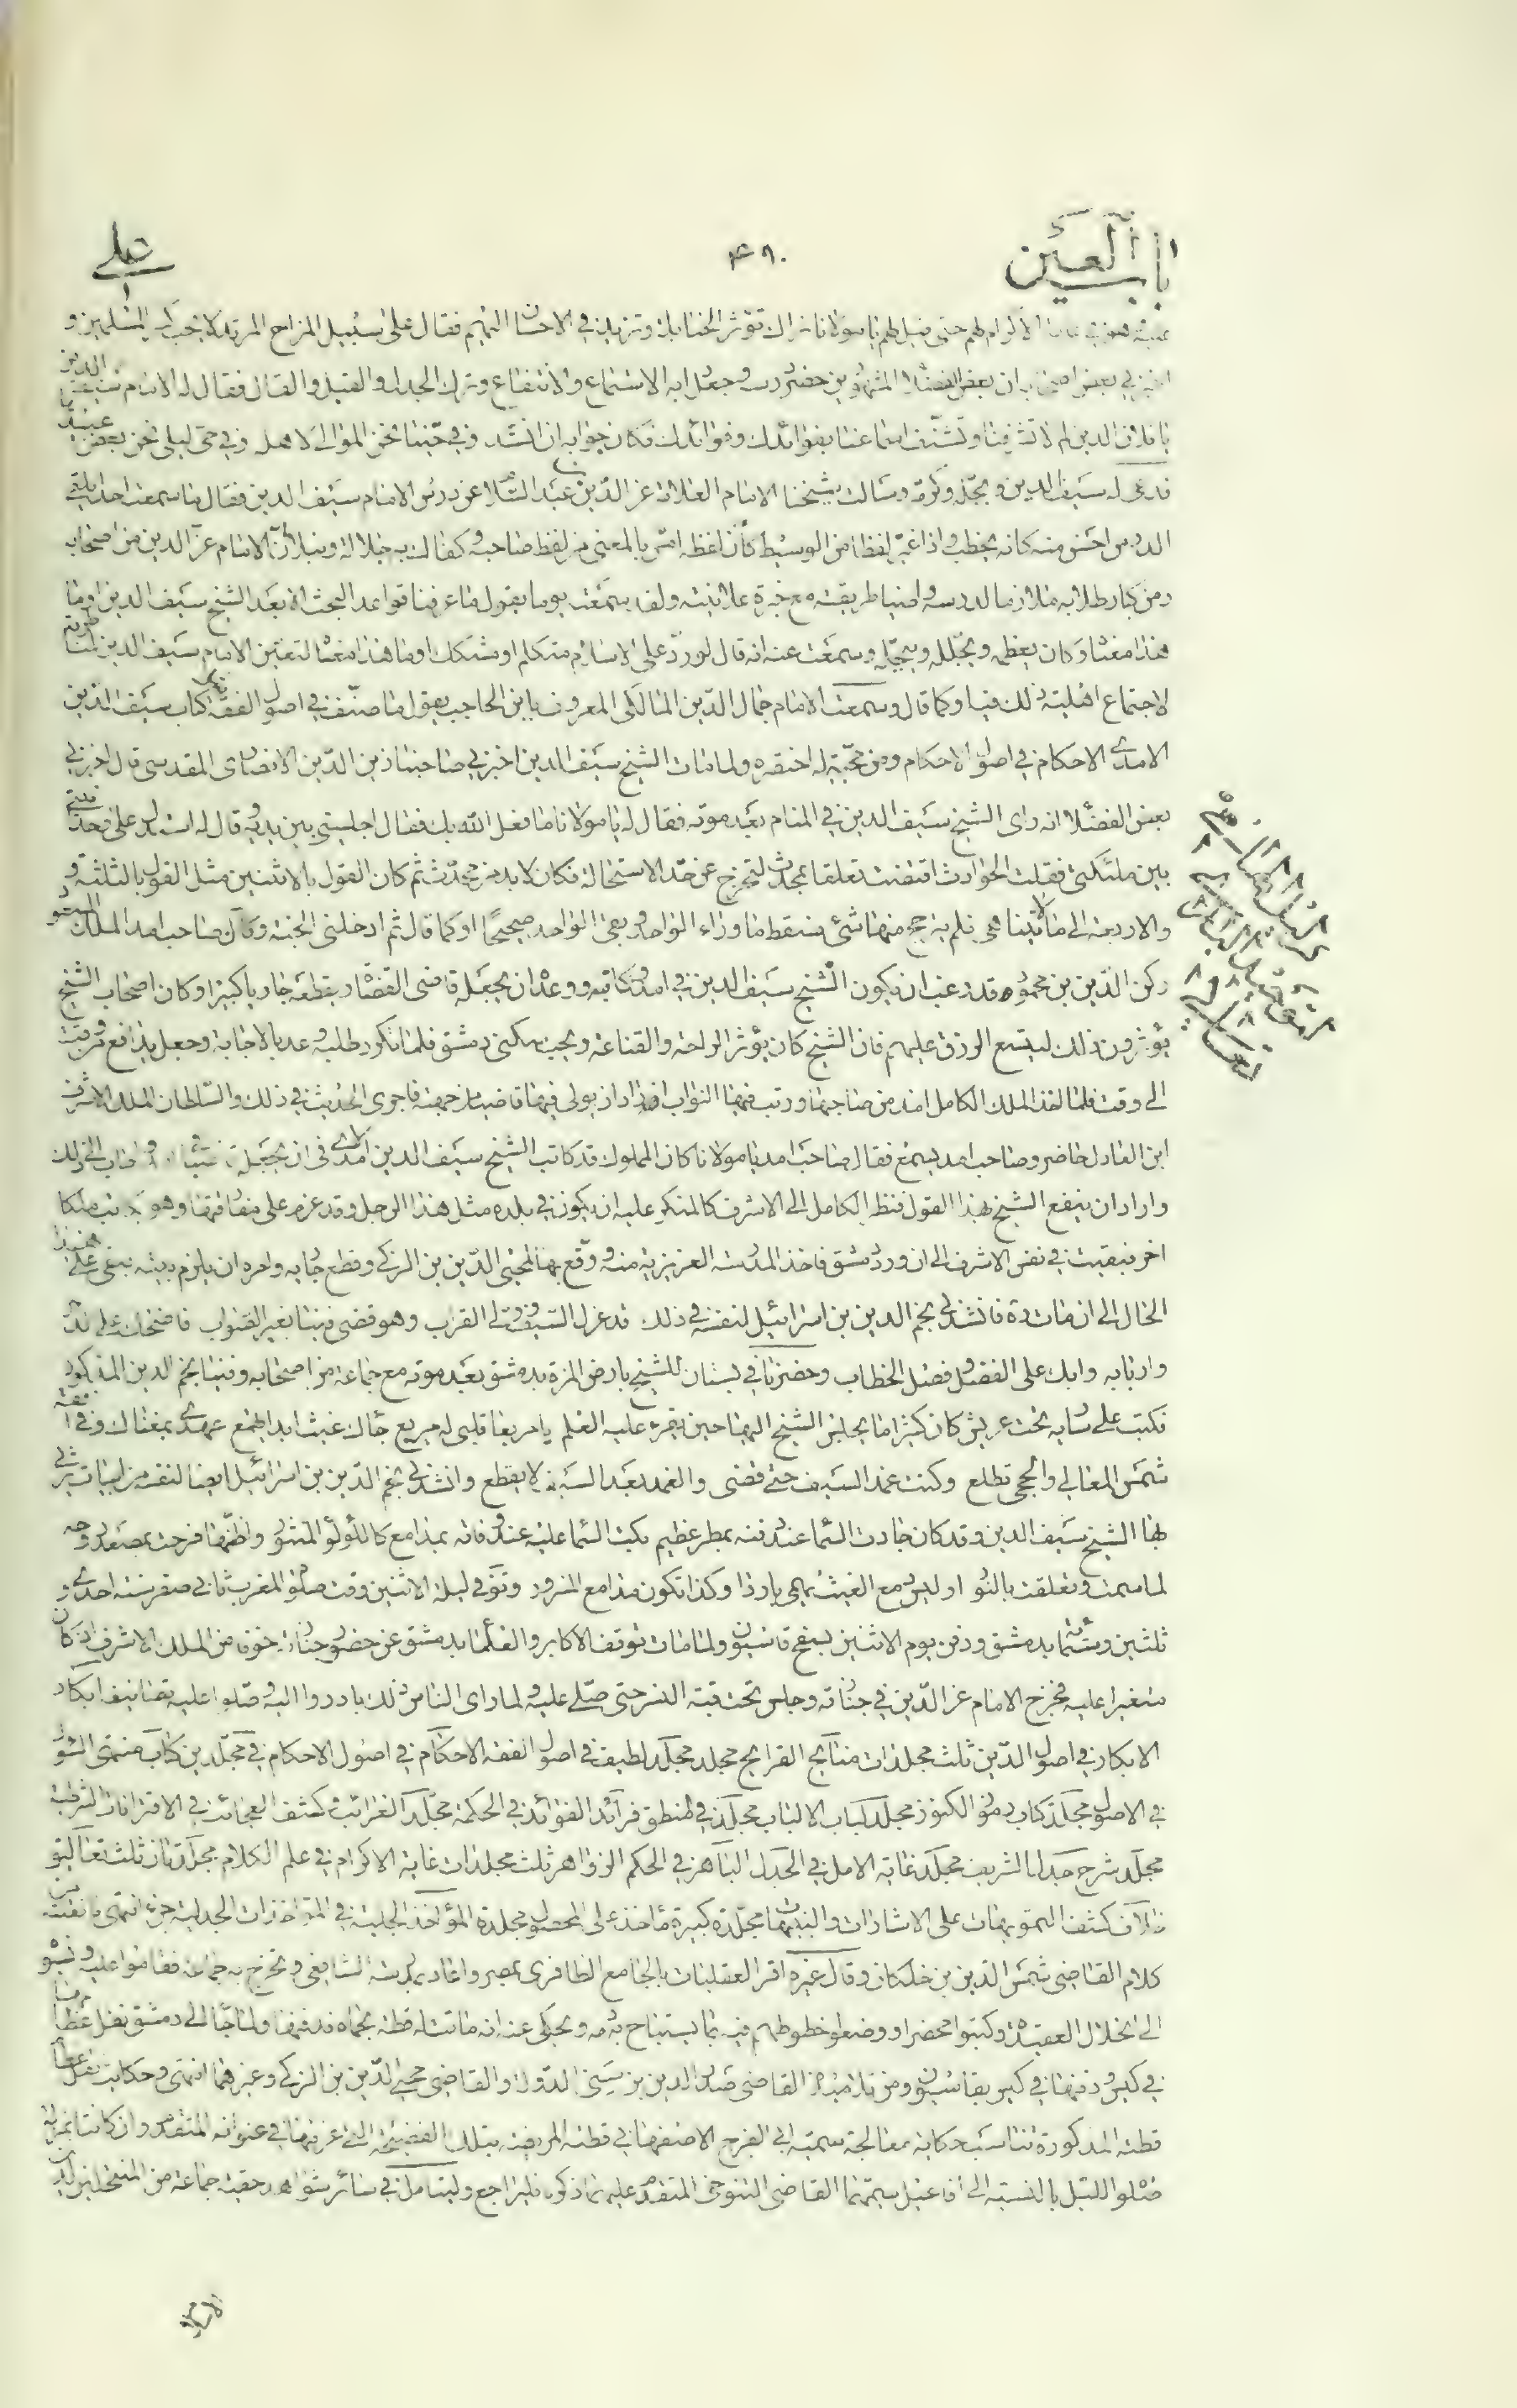 باب العين
۴۹۰
علي
الاكرام لهم حتى قيل لهم يا مولانا نراك تؤثر الحنابلة وتزيد في الاحسان اليهم فقال على سبيل المزاح المرتد لا يحب المسلمين و
بعض اصحابه ان بعض الفضلا المشهورين حضر درسه وجعل ابه الاستماع والانتفاع وترك الجدل والقيل والقال فقال له الامام سيف الدين
يا فلان الدين لم لا تشرفنا وتشنف اسماعنا بفوائدك وفرائدك فكان جوابه ان انشد وفي حينا نحن الموالي لاهله وفي حي ليلى نحن بعض عبيدها
فدعى له سيف الدين وبجله وكرمه وسالت شيخنا الامام العلامة عز الدين بن عبد السلام عن درس الامام سيف الدين فقال ما سمعت احدا يلقي
الدرس احسن منه كانه يخطب واذا غير لفظا من الوسيط كان لفظه امس بالمعنى من لفظ صاحبه وكفاك به جلالة ونبلا الامام عز الدين من اصحابه
ومن كبار طلابه ملازما لدرسه راضيا طريقته مع خبرة علانيته ولقد سمعته يوما يقول ما عرفنا قواعد البحث الا بعد الشيخ سيف الدين او ما
هذا معناه وكان يعظمه ويجلله ويبجله وسمعت عنه انه قال لو ورد على الاسلام متكلم او مشكك او ما هذا معناه لتعين الامام سيف الدين لمناظرته
لاجتماع اهلية ذلك فيه او كما قال وسمعت الامام جمال الدين المالكي المعروف بابن الحاجب يقول ما صنف في اصول الفقه كتاب سيف الدين
الآمدي الاحكام في اصول الاحكام ومن محبته له اختصره ولما مات الشيخ سيف الدين اخبرني صاحبنا زين الدين الانصاري المقدسي قال اخبرني
بعض الفضلا انه راى الشيخ سيف الدين في المنام بعد موته فقال له يا مولانا ما فعل الله بك فقال اجلسني بين يديه وقال له استدل على وحدانيتي
بين ملئكتي فقلت الحوادث اقتضت تعلقا بمحدث لتخرج عن حد الاستحالة فكان لا بد من محدث ثم كان القول بالاثنين مثل القول بالثلثة و
والاربعة الى ما لا يتناهى فلم يترجح منها شئ فسقط ما وراء الواحد وبقى الواحد صحيحا او كما قال ثم ادخلني الجنة وكان صاحب امد الملك المسعود
ركن الدين بن محمود قد رغب ان يكون الشيخ سيف الدين في امد وكاتبه ووعد ان يجعله قاضي القضاة ويقطعه جاريا كبيرا وكان اصحاب الشيخ
يؤثرون ذلك ليتسع الرزق عليهم فان الشيخ كان يؤثر الراحة والقناعة ويحب سكنى دمشق فلما تكرر طلبه وعد بالاجابة وجعل يدافع من وقت
الى وقت فلما اخذ الملك الكامل امد من صاحبها ورتب فيها النواب اراد ان يولي فيها قاضيا من جهته فاجرى الحديث في ذلك والسلطان الملك الاشرف
ابن العادل حاضر وصاحب امد يسمع فقال صاحب امد يا مولانا كان المملوك قد كاتب الشيخ سيف الدين الآمدي في ان يجعله قاضيا واجاب الى ذلك
واراد ان ينفع الشيخ بهذا القول فنظر الكامل الى الاشرف كالمنكر عليه ان يكون في بلده مثل هذا الرجل وقد عزم على مفارقتها وهو يكاتب ملكا
اخر فبقيت في نفس الاشرف الى ان ورد دمشق فاخذ المدرسة العزيزية منه ووقع بها لمحيي الدين بن الزكي وقطع جابه وامره ان يلزم بيته فبقي على هذا
الحال الى ان مات ره فانشدني نجم الدين بن اسرائيل لنفسه في ذلك قد عزل السيف وولى القراب وهو قضى فينا بغير الصواب فاضحك على
واربابه وابك على الفضل وفصل الخطاب وحضرنا في بستان للشيخ بارض المزة بدمشق بعد موته مع جماعة من اصحابه وفينا نجم الدين المذكور
فكتب على سارية تحت عريش كان كثيرا ما يجلس الشيخ اليها حين يقرء عليه العلم يا مربعا قلبي له مربع جاءك غيث ابدا يهمع عهدي بمغناك وفي افقه
شمس المعالي والحجى تطلع وكنت غمد السيف حتى قضى والغمد بعد السيف لا يقطع وانشدني نجم الدين بن اسرائيل ايضا لنفسه من ابيات يرثي
بها الشيخ سيف الدين وقد كان جادت السما عند دفنه بمطر عظيم بكت السما عليه عند وفاته بمدامع كاللؤلؤ المنثور واظنها فرحت بمصعد روحه
لما سمت وتعلقت بالنور اوليس دمع الغيث يهمي باردا وكذا تكون مدامع المسرور وتوفي ليلة الاثنين وقت صلوة المغرب ثاني صفر سنة احدى و
ثلثين وستمائة بدمشق ودفن يوم الاثنين بسفح قاسيون ولما مات توقف الاكابر والعلما بدمشق عن حضور جنازته خوفا من الملك الاشرف اذ كان
متغيرا عليه فخرج الامام عز الدين في جنازته وجلس تحت قبة النسر حتى صلى عليه ولما راى الناس ذلك بادروا اليه وصلوا عليه تصانيفه ابكار
الابكار في اصول الدين ثلث مجلدات منايح القرايح مجلد مجلد لطيف في اصول الفقه الاحكام في اصول الاحكام في مجلدين كتاب منتهى السول
في الاصول مجلد كتاب رموز الكنوز مجلد لباب الالباب مجلد في المنطق فرائد الفوائد في الحكمة مجلد الغرائب وكشف العجائب في الاقترانات الشرطية
مجلد شرح جدل الشريف مجلد غاية الامل في الجدل الباهر في الحكم الزواهر ثلث مجلدات غاية الاكرام في علم الكلام مجلدان ثلث تعاليق
كشف التمويهات على الاشارات والتنبيهات مجلدة كبيرة مآخذ على المحصول مجلدة المؤاخذ الجلية في المؤاخذات الجدلية جزء انتهى
كلام القاضي شمس الدين بن خلكان وقال غيره اقرا العقليات بالجامع الظافري بمصر واعاد بمدرسة الشافعي وتخرج به جماعة فقاموا عليه ونسبوه
الى انحلال العقيدة وكتبوا محضرا ووضعوا خطوطهم فيه بما يستباح به دمه ويحكى عنه انه ماتت له قطة بحماة فدفنها ولما جاء الى دمشق نقل عظامها
في كيس ودفنها في كيس بقاسيون ومن تلاميذه القاضي صدر الدين بن سني الدولة والقاضي محيي الدين بن الزكي وغيرهما انتهى وحكاية نقل عظام
قطته المذكورة تناسب حكاية معالجة سميه ابي الفرج الاصفهاني قطته المريضة بتلك الفضيحة التي عرفتها في عنوانه المتقدم وان كانتا بمنزلة
بالنسبة الى افاعيل سميهما القاضي التنوخي المتقدم عليه ما ذكره فليراجع وليتامل في سائر شواهد حقية جماعة من المنتحلين